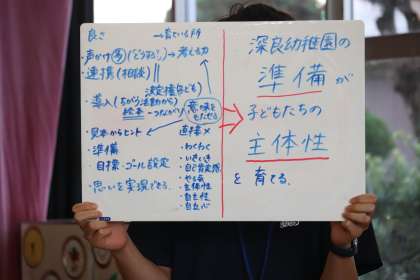 良さ →育っている所
・声かけ多（"どうする?"）→考える力
・連携（相談）
・導入（ちがう活動から）
絵本 つながり
意味を
もたせる
・見本からヒント
直接×
・準備
・目標・ゴール設定
・思いを実現できる
・わくわく
・いきいき
・自己肯定感
・やる気
・主体性
・自主性
・自立心
深良幼稚園の
準備が
子どもたちの
主体性
を育てる。